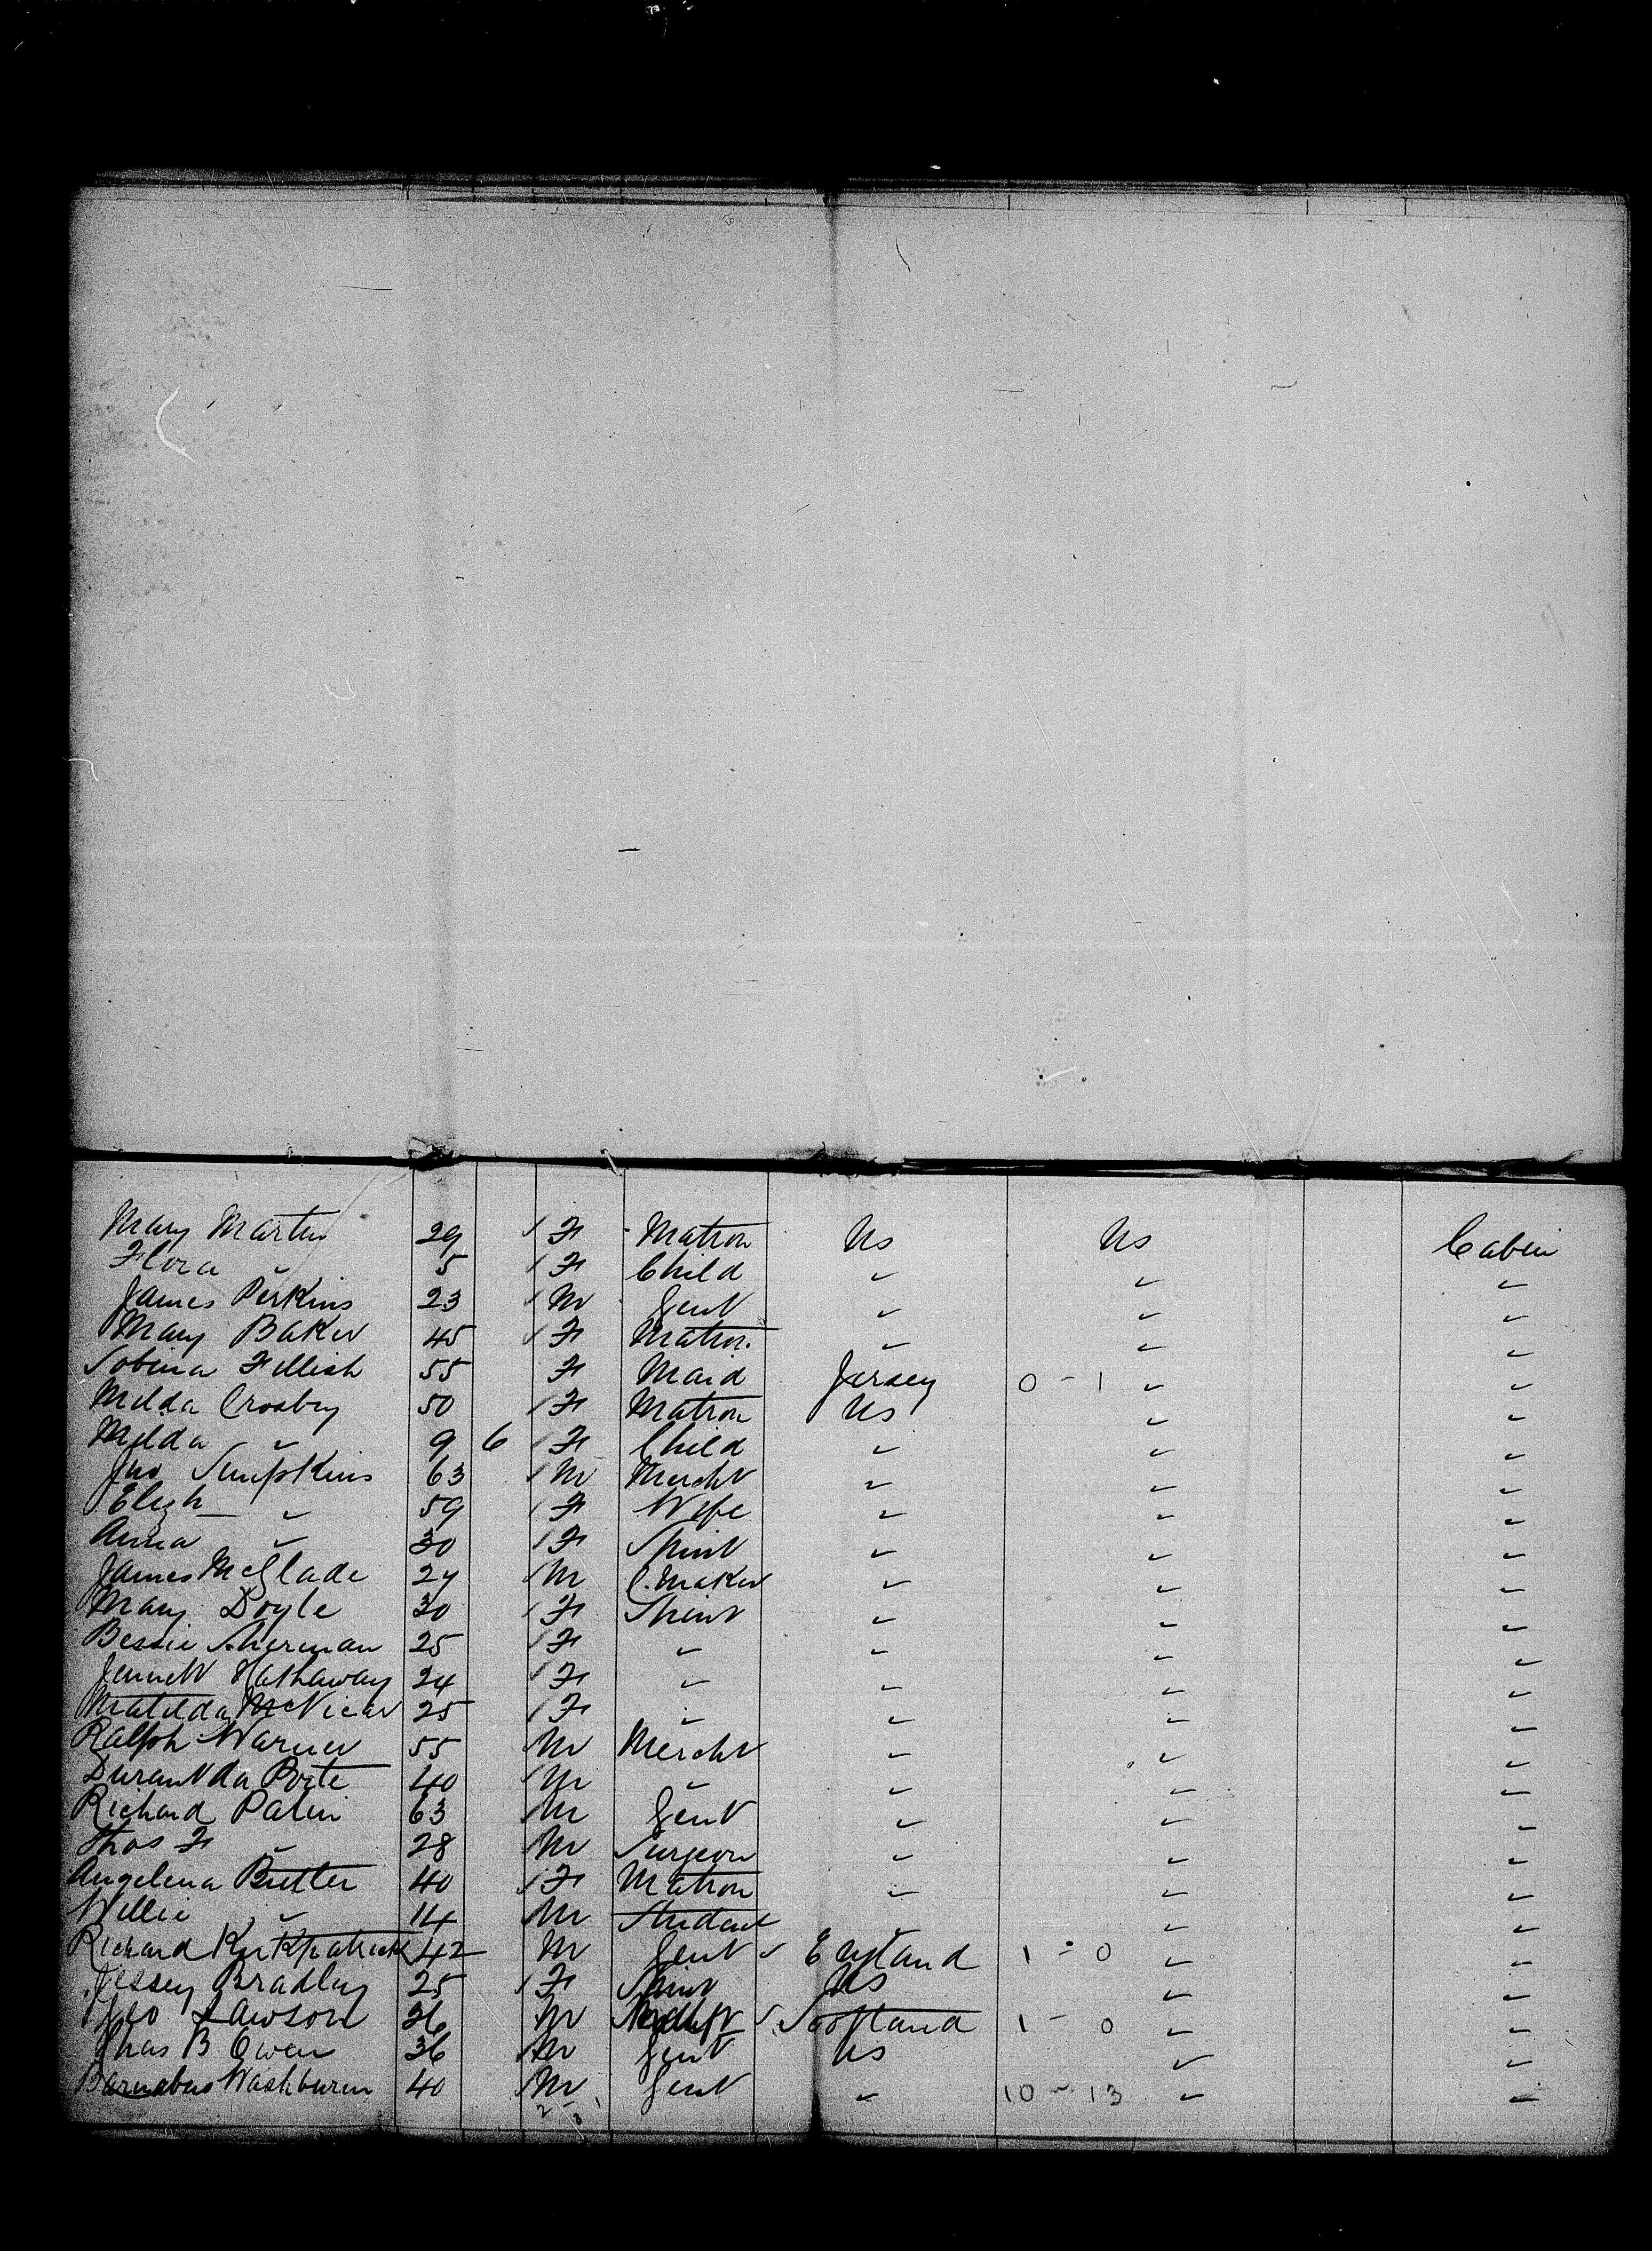 Mary Martin 29 / F - Matron Us Us Cabin
Flora " 5 / F Child " " "
James Perkins 23 / M Gent " " "
Mary Baker 45 / F Matron " " "
Sobina Fillish 55 F Maid Jersey 0 - 1 " "
Milda Crosby 50 / F Matron Us " "
Milda " 9 6 / F Child " " "
Jno Simpkins 63 / M Mercht " " "
Elizh " 59 / F Wife " " "
Anna " 30 / F Spinst " " "
James McGlade 27 / M C. Maker " " "
Mary Doyle 30 / F Spinst " " "
Bessie Sherman 25 / F " " " "
Jennett Hathaway 24 / F " " " "
Matilda McVicar 25 / F " " " "
Ralph Warner 55 / M Mercht " " "
Durant da Ponte 40 / M " " " "
Richard Palin 63 / M Gent " " "
Thos F " 28 / M Surgeon " " "
Angelena Butler 40 / F Matron " " "
Willie " 14 / M Student " "
Richard Kirkpatrick 42 M Gent England 1 - 0 " "
Jessey Bradley 25 / F Spinst Us " "
Geo Lawson 36 M Scotland 1 - 0 " "
Chas B Owen 36 / M Gent Us " "
Barnabus Washburn 40 / M Gent " 10 - 13 " "